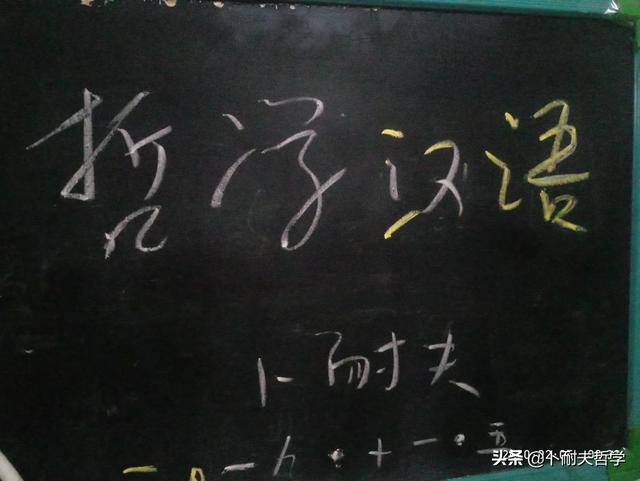 哲学汉语
卜耐夫
一九·十一·五
头条 @卜耐夫哲学